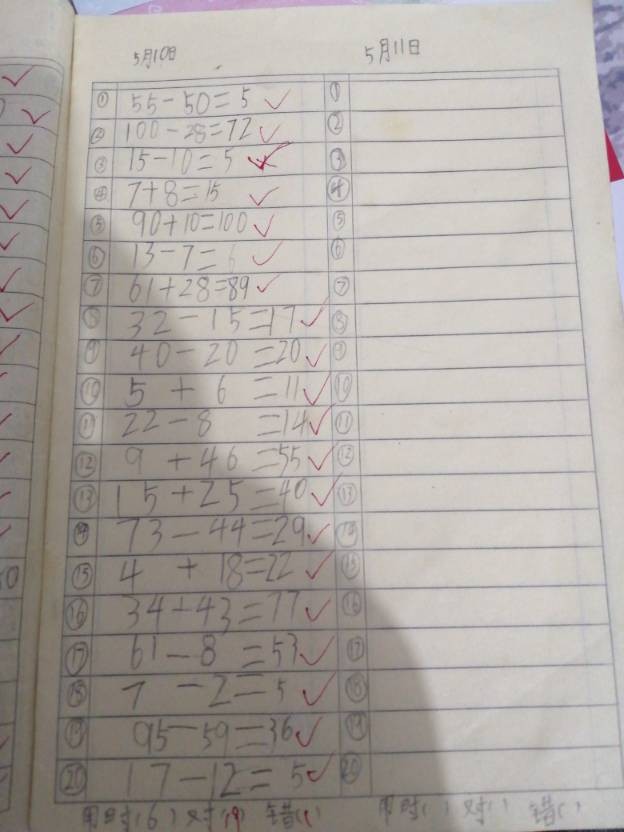 5月10日 5月11日
① 55-50=5 ①
② 100-28=72 ②
③ 15-10=5 ③
④ 7+8=15 ④
⑤ 90+10=100 ⑤
⑥ 13-7=6 ⑥
⑦ 61+28=89 ⑦
⑧ 32-15=17 ⑧
⑨ 40-20=20 ⑨
⑩ 5+6=11 ⑩
⑪ 22-8=14 ⑪
⑫ 9+46=55 ⑫
⑬ 15+25=40 ⑬
⑭ 73-44=29 ⑭
⑮ 4+18=22 ⑮
⑯ 34+43=77 ⑯
⑰ 61-8=53 ⑰
⑱ 7-2=5 ⑱
⑲ 95-59=36 ⑲
⑳ 17-12=5 ⑳
用时(6) 对(19) 错(1) 用时( ) 对( ) 错( )